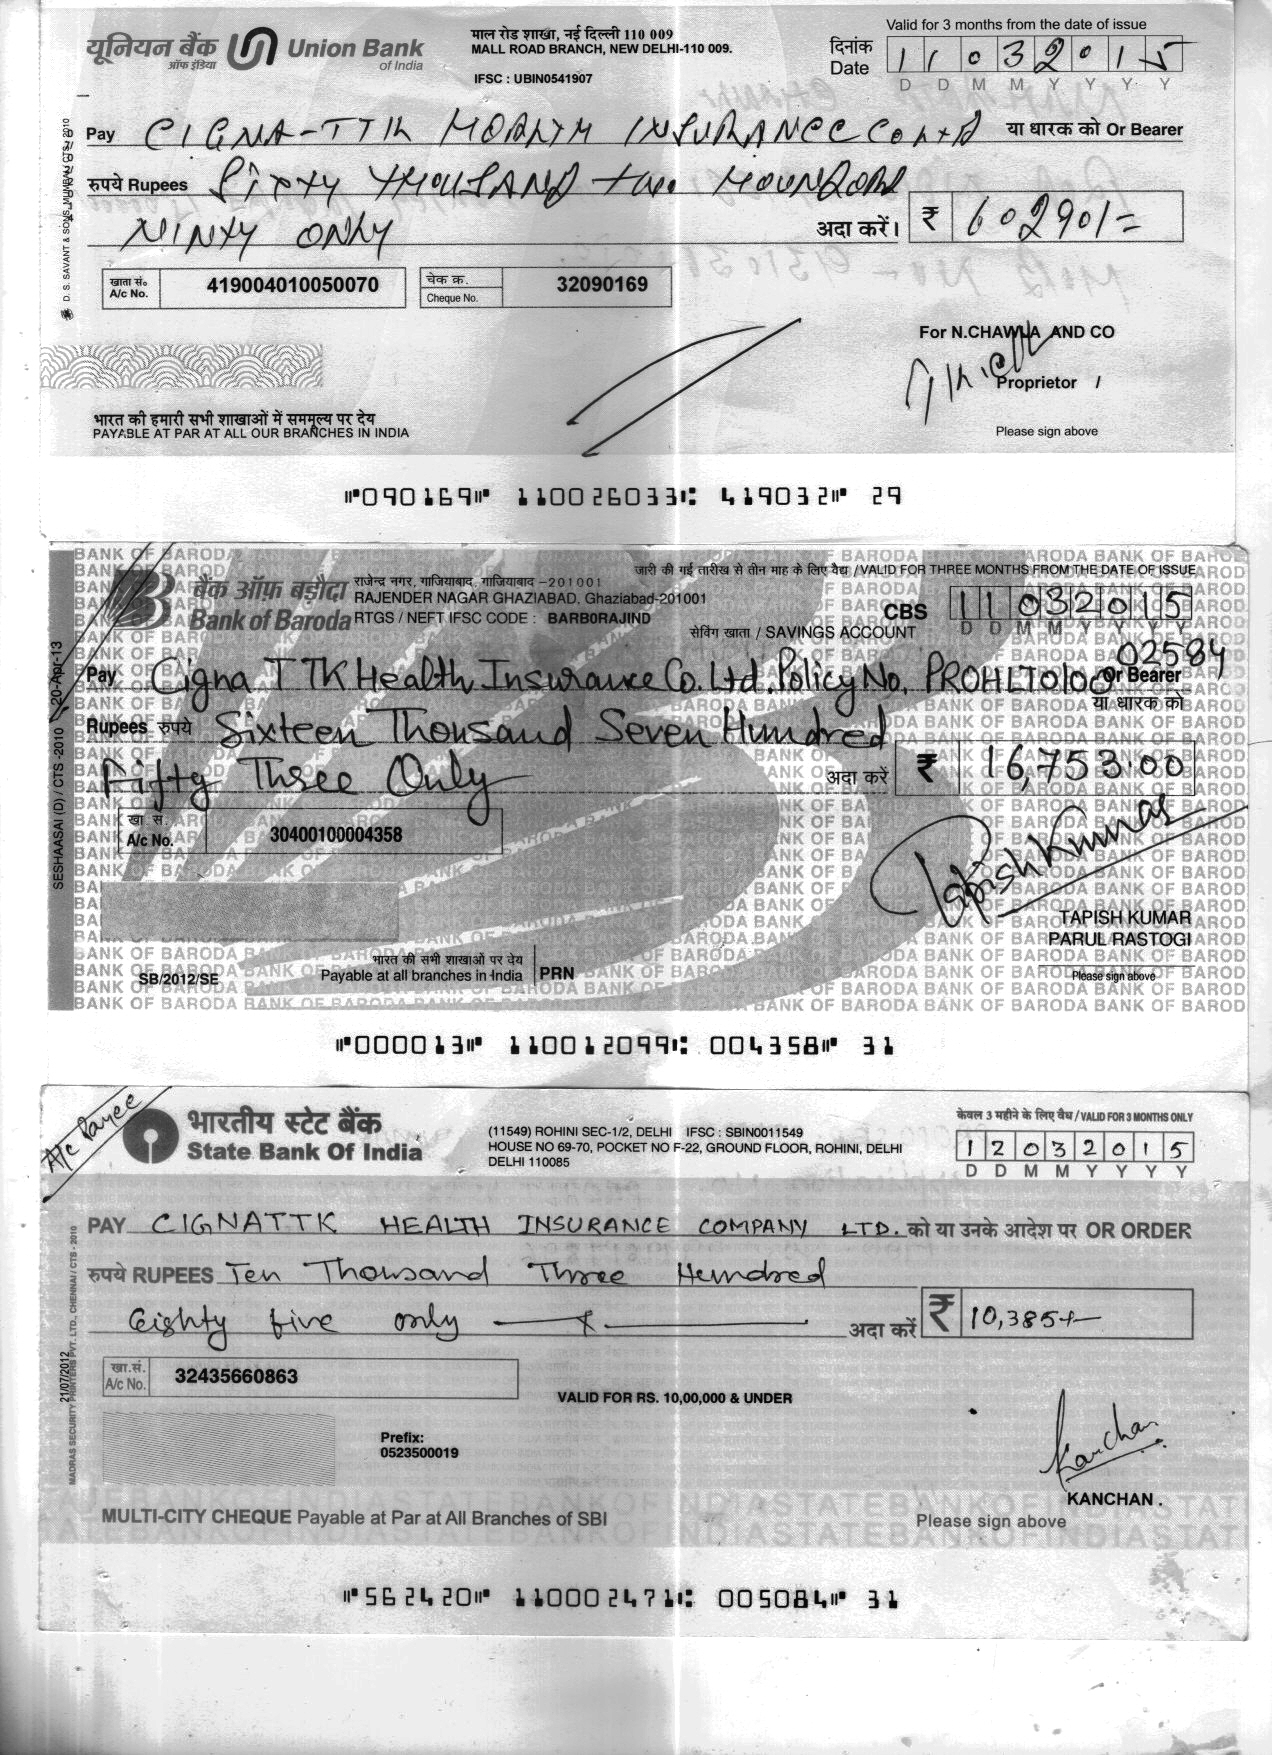 यूनियन बैंक Union Bank
ऑफ इंडिया of India
माल रोड शाखा, नई दिल्ली 110 009
MALL ROAD BRANCH, NEW DELHI-110 009.
IFSC : UBIN0541907
Valid for 3 months from the date of issue
दिनांक
Date 11032015
D D M M Y Y Y Y
Pay CIGNA-TTK HEALTH INSURANCE CO LTD या धारक को Or Bearer
रुपये Rupees Sixty THOUSAND two HOUNDRED
NINTY ONLY अदा करें। ₹ 60290/=
खाता सं॰
A/c No. 419004010050070
चेक क्र.
Cheque No. 32090169
D. S. SAVANT & SONS, MUMBAI CTS 2010
For N.CHAWLA AND CO
Proprietor /
Please sign above
भारत की हमारी सभी शाखाओं में सममूल्य पर देय
PAYABLE AT PAR AT ALL OUR BRANCHES IN INDIA
⑈090169⑈ 110026033⑆ 419032⑈ 29
बैंक ऑफ़ बड़ौदा
Bank of Baroda
राजेन्द्र नगर, गाजियाबाद, गाजियाबाद -201001
RAJENDER NAGAR GHAZIABAD, Ghaziabad-201001
RTGS / NEFT IFSC CODE : BARB0RAJIND
जारी की गई तारीख से तीन माह के लिए वैध /VALID FOR THREE MONTHS FROM THE DATE OF ISSUE
CBS 11032015
D D M M Y Y Y Y
सेविंग खाता / SAVINGS ACCOUNT
02584
Pay Cigna TTK Health Insurance Co. Ltd. Policy No. PROHLT0100 Or Bearer
या धारक को
Rupees रुपये Sixteen Thousand Seven Hundred
Fifty Three Only अदा करें ₹ 16,753.00
खा. सं.
A/c No. 30400100004358
SESHAASAI (D) / CTS -2010 20-Apr-13
Tapish Kumar
TAPISH KUMAR
PARUL RASTOGI
Please sign above
भारत की सभी शाखाओं पर देय
SB/2012/SE Payable at all branches in India PRN
⑈000013⑈ 110012099⑆ 004358⑈ 31
A/c Payee
भारतीय स्टेट बैंक
State Bank Of India
(11549) ROHINI SEC-1/2, DELHI IFSC : SBIN0011549
HOUSE NO 69-70, POCKET NO F-22, GROUND FLOOR, ROHINI, DELHI
DELHI 110085
केवल 3 महीने के लिए वैध / VALID FOR 3 MONTHS ONLY
12032015
D D M M Y Y Y Y
PAY CIGNATTK HEALTH INSURANCE COMPANY LTD. को या उनके आदेश पर OR ORDER
रुपये RUPEES Ten Thousand Three Hundred
Eighty five only अदा करें ₹ 10,385/-
खा.सं.
A/c No. 32435660863
VALID FOR RS. 10,00,000 & UNDER
Prefix:
0523500019
MADRAS SECURITY PRINTERS PVT. LTD., CHENNAI / CTS - 2010
21/07/2012
Kanchan
KANCHAN .
MULTI-CITY CHEQUE Payable at Par at All Branches of SBI
Please sign above
⑈562420⑈ 110002471⑆ 005084⑈ 31